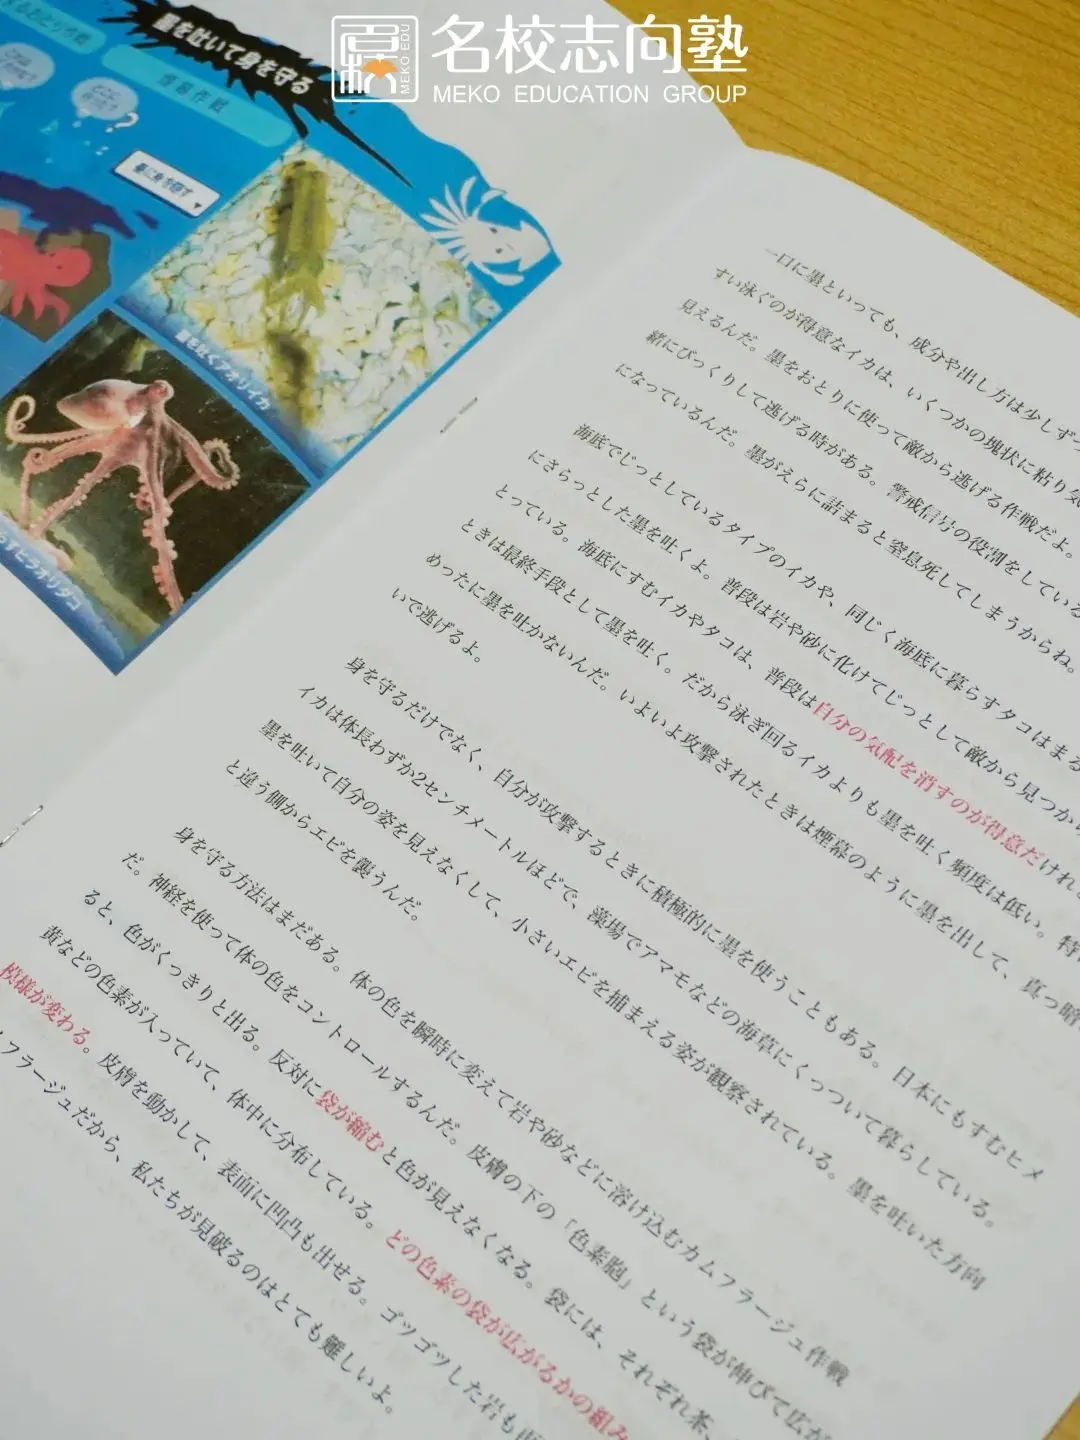 名校志向塾
MEKO EDUCATION GROUP
MEKO EDU
墨を吐いて身を守る
煙幕作戦
墨に身を隠す
墨を吐くアオリイカ
ヒラオリダコ
一口に墨といっても、成分や出し方は少しずつ
すい泳ぐのが得意なイカは、いくつかの塊状に粘り気
見えるんだ。墨をおとりに使って敵から逃げる作戦だよ。
緒にびっくりして逃げる時がある。警戒信号の役割をしている
になっているんだ。墨がえらに詰まると窒息死してしまうからね。
海底でじっとしているタイプのイカや、同じく海底に暮らすタコはまる
にさらっとした墨を吐くよ。普段は岩や砂に化けてじっとして敵から見つから
とっている。海底にすむイカやタコは、普段は自分の気配を消すのが得意だけれ
ときは最終手段として墨を吐く。だから泳ぎ回るイカよりも墨を吐く頻度は低い。特に
めったに墨を吐かないんだ。いよいよ攻撃されたときは煙幕のように墨を出して、真っ暗
いで逃げるよ。
身を守るだけでなく、自分が攻撃するときに積極的に墨を使うこともある。日本にもすむヒメ
イカは体長わずか2センチメートルほどで、藻場でアマモなどの海草にくっついて暮らしている。
墨を吐いて自分の姿を見えなくして、小さいエビを捕まえる姿が観察されている。墨を吐いた方向
と違う側からエビを襲うんだ。
身を守る方法はまだある。体の色を瞬時に変えて岩や砂などに溶け込むカムフラージュ作戦
だ。神経を使って体の色をコントロールするんだ。皮膚の下の「色素胞」という袋が伸びて広が
ると、色がくっきりと出る。反対に袋が縮むと色が見えなくなる。袋には、それぞれ茶、
黄などの色素が入っていて、体中に分布している。どの色素の袋が広がるかの組み
模様が変わる。皮膚を動かして、表面に凹凸も出せる。ゴツゴツした岩も
フラージュだから、私たちが見破るのはとても難しいよ。